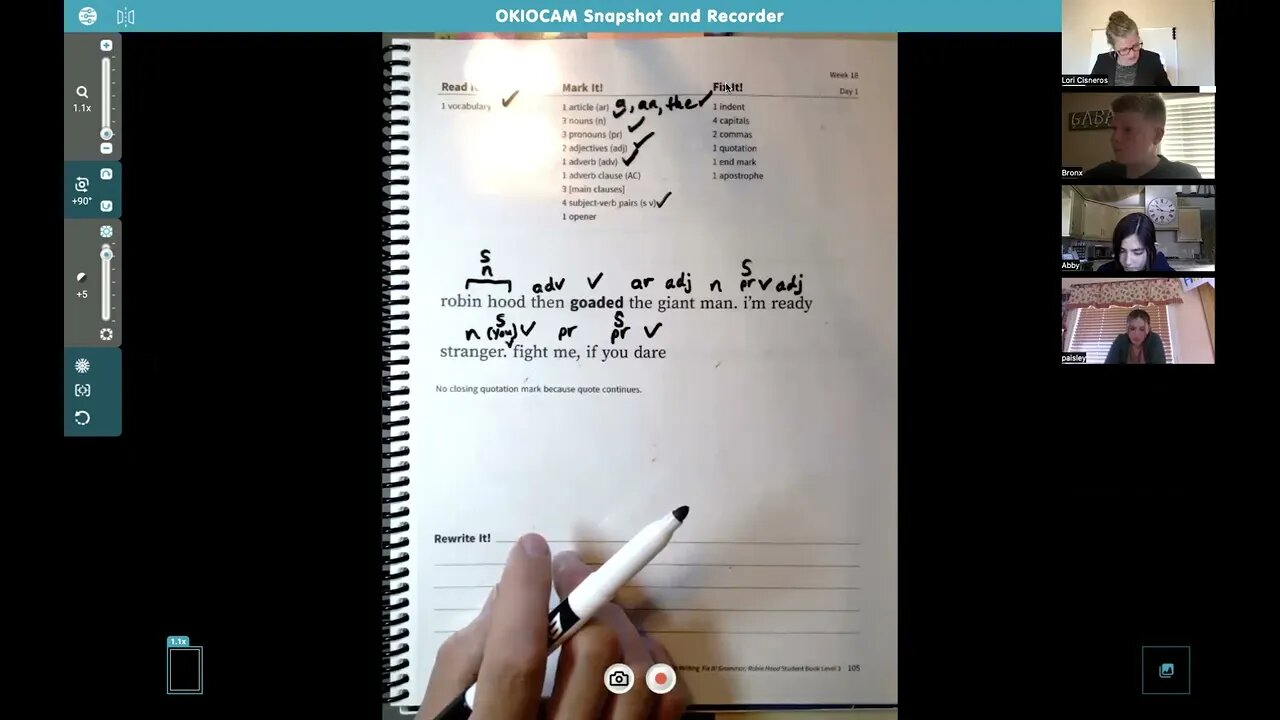 OKIOCAM Snapshot and Recorder
1.1x
+90°
+5
1.1x
Week 18
Day 1
Read
1 vocabulary ✓
Mark It!
1 article (ar) a, an, the ✓
3 nouns (n) ✓
3 pronouns (pr) ✓
2 adjectives (adj) ✓
1 adverb (adv) ✓
1 adverb clause (AC)
3 [main clauses]
4 subject-verb pairs (s v) ✓
1 opener
Fix It!
1 indent
4 capitals
2 commas
1 quotation
1 end mark
1 apostrophe
S S
n adv v ar adj n pr v adj
robin hood then goaded the giant man. i'm ready
S S
n (you) v pr pr v
stranger. fight me, if you dare
No closing quotation mark because quote continues.
Rewrite It!
Writing Fix It! Grammar, Robin Hood Student Book Level 3 105
Lori Cisneros
GABA
Bronx
Abby
paisley